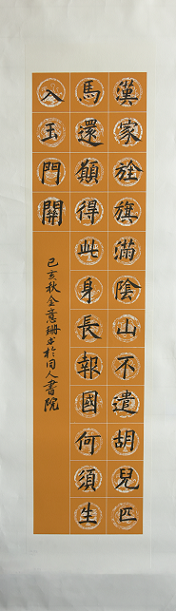 漢家旌旗滿陰山不遣胡兒匹
馬還願得此身長報國何須生
入玉門關
己亥秋金意珊书於同人書院